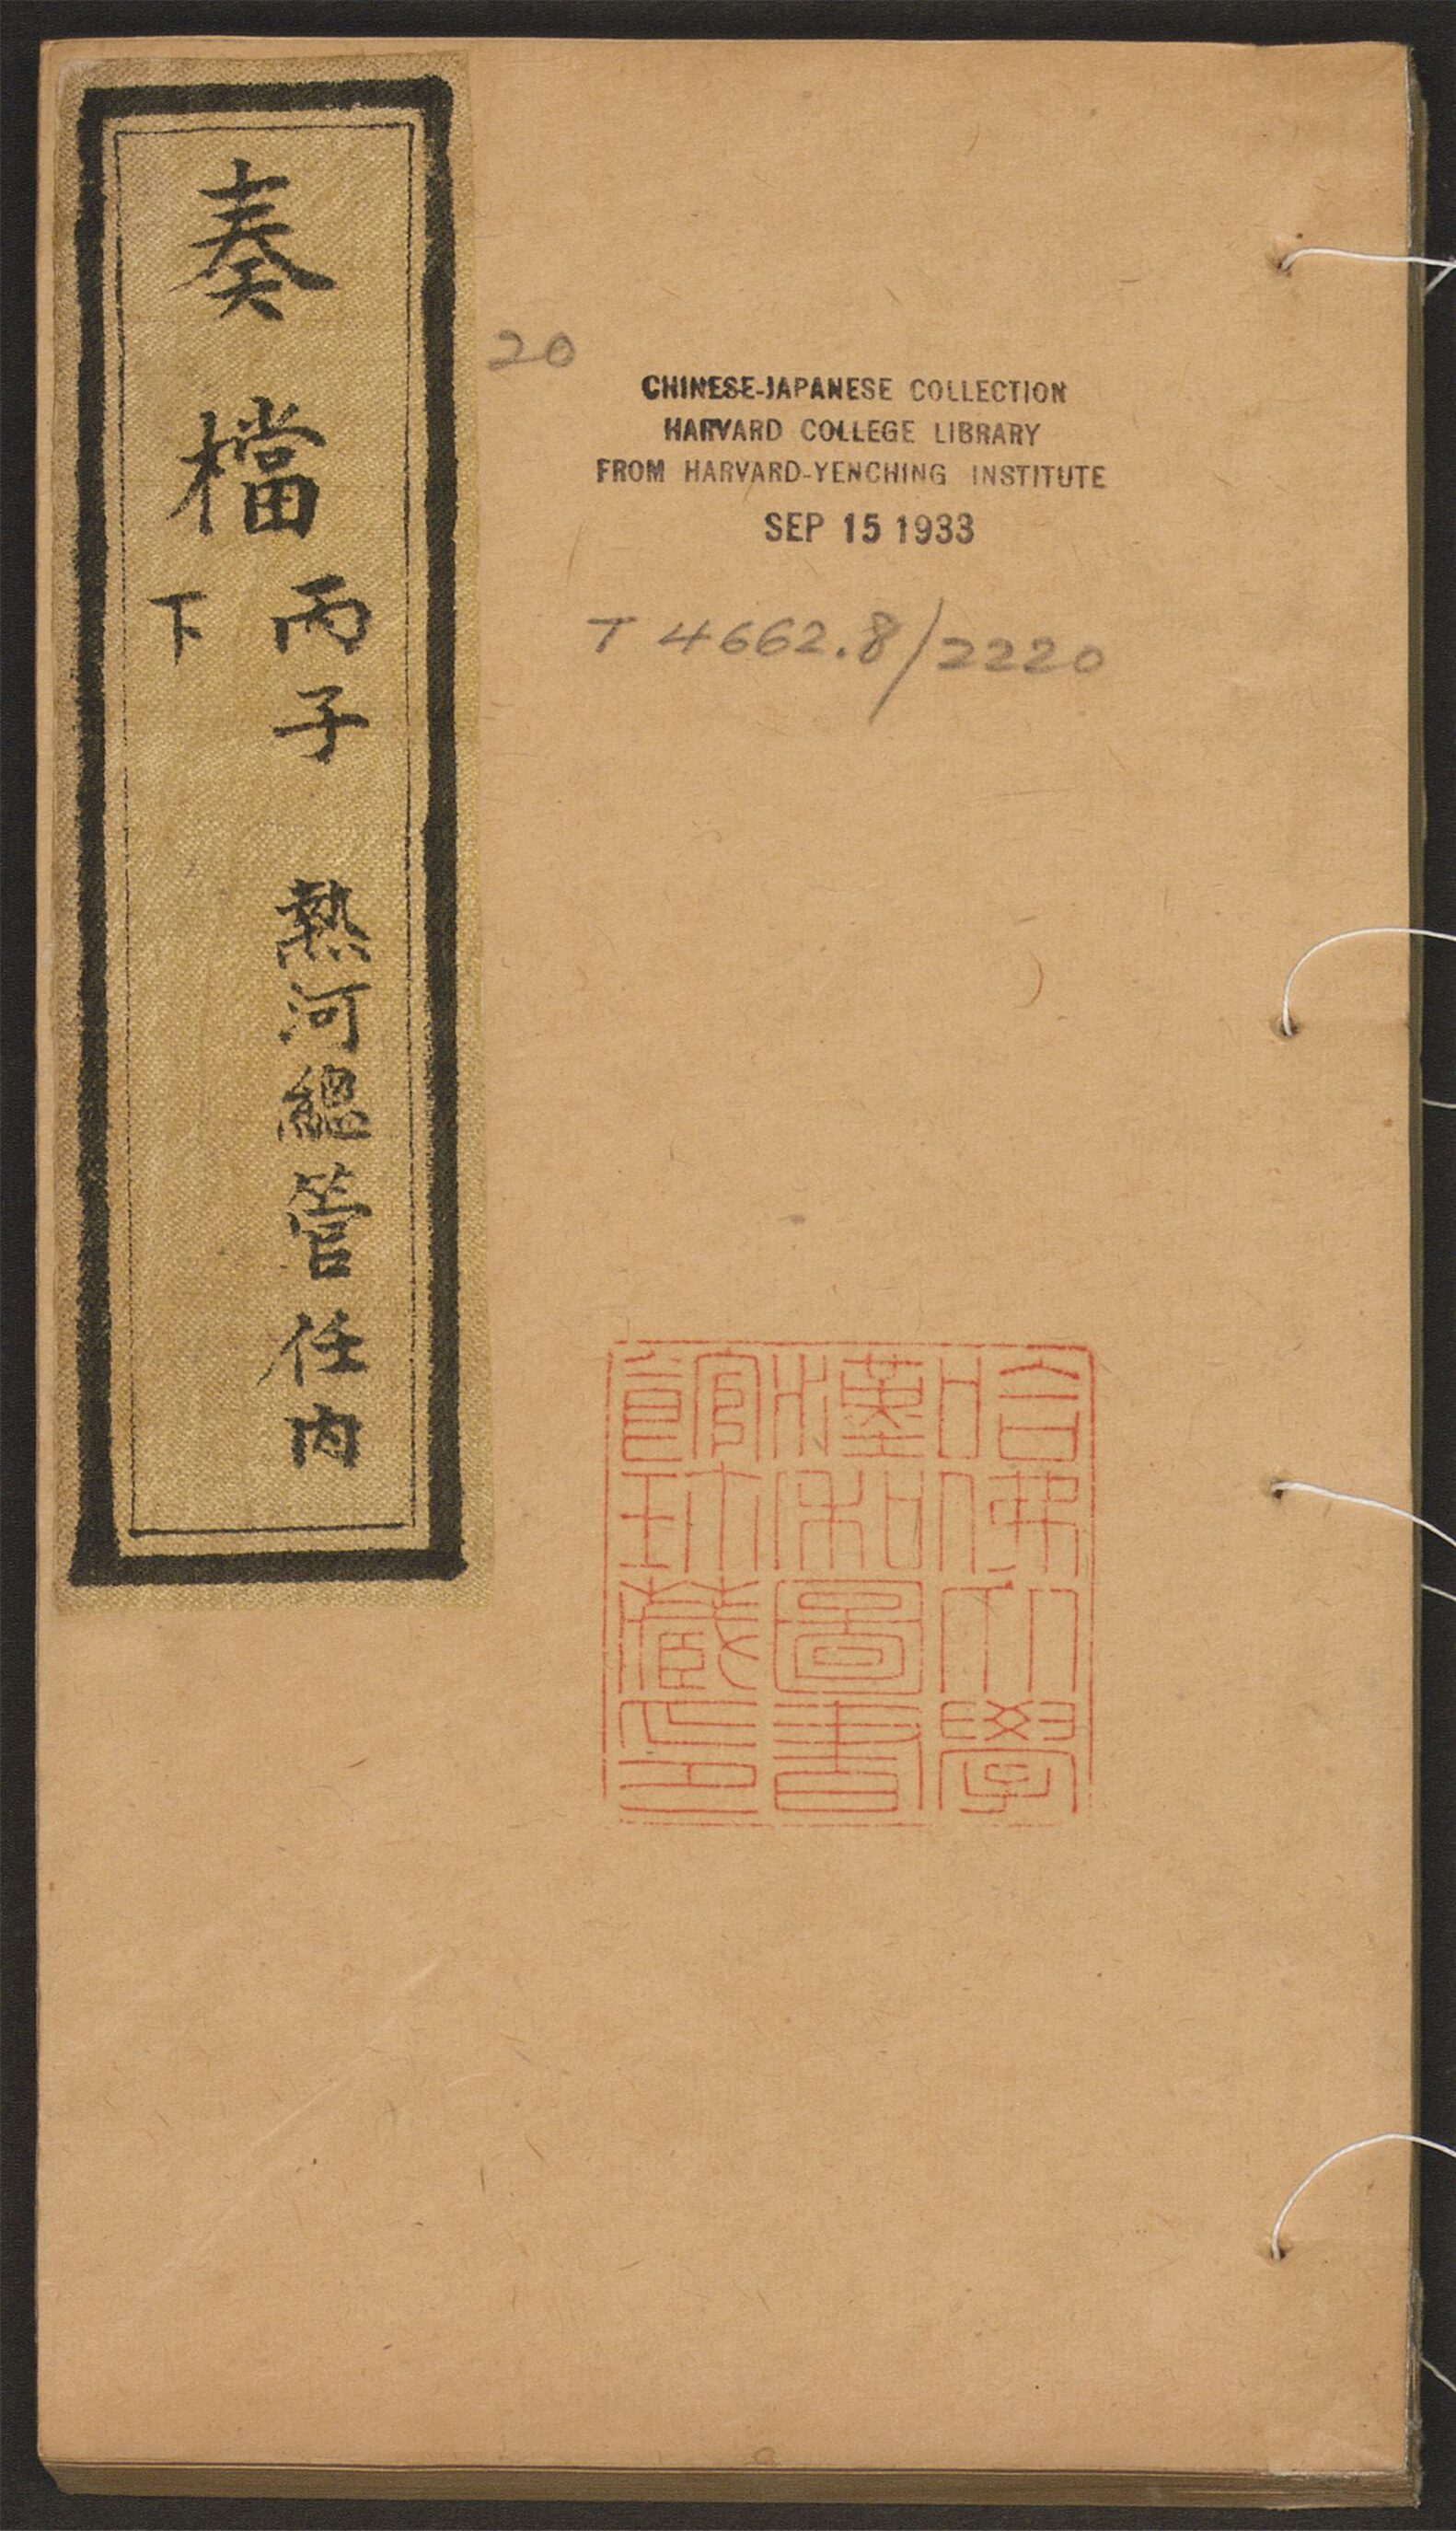 奏檔
丙子 熱河總管任内
下
20
CHINESE-JAPANESE COLLECTION
HARVARD COLLEGE LIBRARY
FROM HARVARD-YENCHING INSTITUTE
SEP 15 1933
T 4662.8/2220
哈佛大學
漢和圖書
館珍藏印